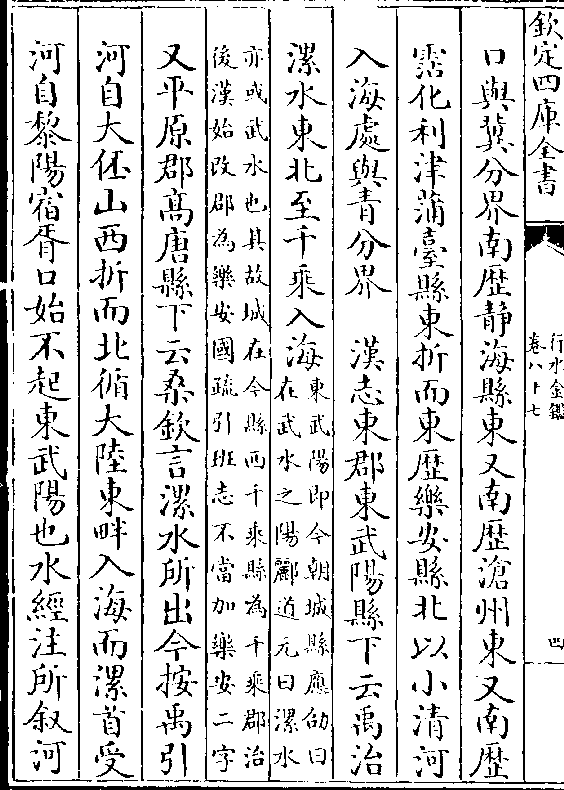 欽定四庫全書
行水金鑑
卷八十七
四
口與冀分界南歷靜海縣東又南歷滄州東又南歷
霑化利津蒲臺縣東折而東歷樂安縣北以小清河
入海處與青分界　漢志東郡東武陽縣下云禹治
漯水東北至千乘入海東武陽即今朝城縣應劭曰在武水之陽酈道元曰漯水
亦或武水也其故城在今縣西千乘縣為千乘郡治後漢始改郡為樂安國疏引班志不當加樂安二字
又平原郡高唐縣下云桑欽言漯水所出今按禹引
河自大伾山西折而北循大陸東畔入海而漯首受
河自黎陽宿胥口始不起東武陽也水經注所敘河